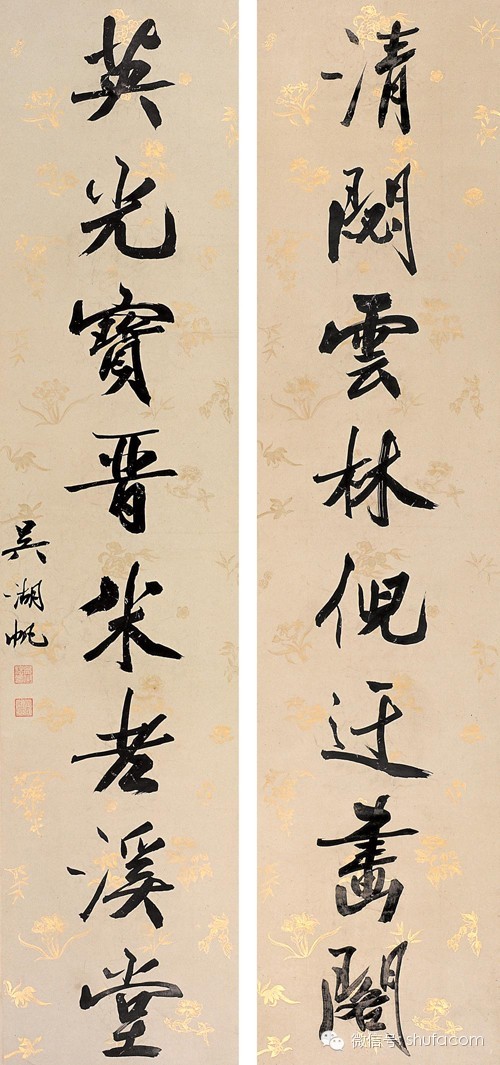 清閟雲林倪迂畫閣
英光寶晉米老溪堂
吳湖帆
微信号: shufacom